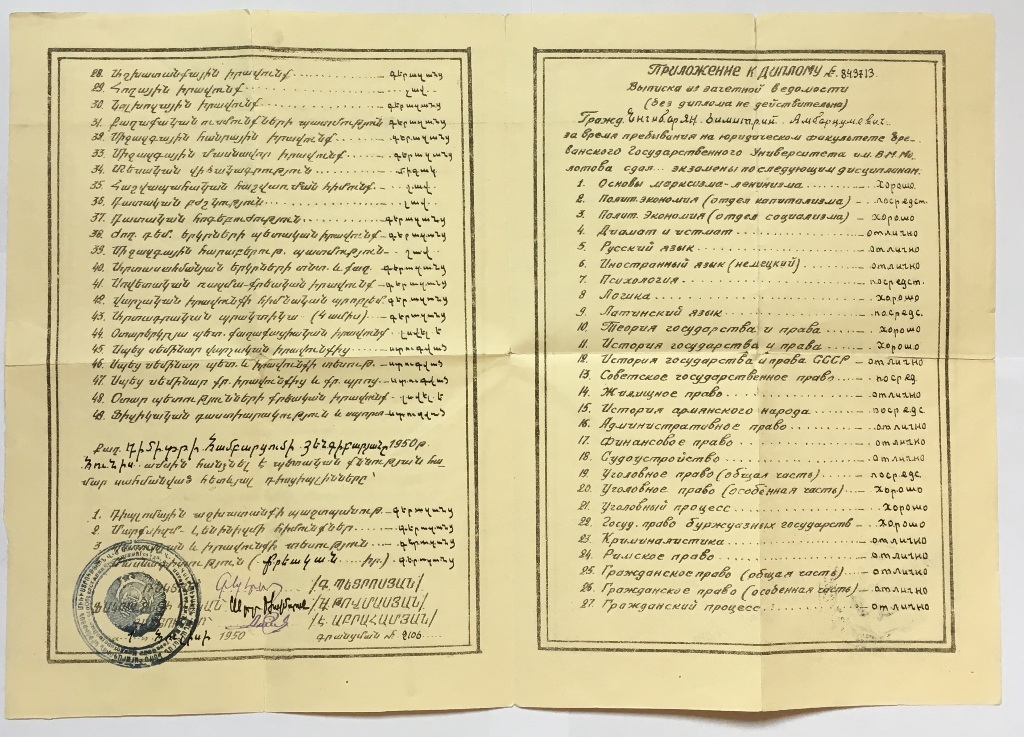 28. Աշխատանքային իրավունք .......... — գերազանց
29. Հողային իրավունք .......... լավ
30. Կոլխոզային իրավունք .......... գերազանց
31. Քաղաքական ուսմունքների պատմություն — գերազանց
32. Միջազգային հանրային իրավունք .... գերազանց
33. Միջազգային մասնավոր իրավունք .... գերազանց
34. Մետական վիճակագրություն ........ — միջակ
35. Հաշվապահական հաշվառման հիմունք. — լավ.
36. Դատական բժշկություն .......... — լավ.
37. Դատական հոգեբուժություն .......... գերազանց
38. Ժող. դեմ. երկրների պետական իրավունք.. գերազանց
39. Միջազգային հարաբերութ. պատմություն — լավ
40. Արտասահմանյան երկրների տնտ. և քաղ. գերազանց
41. Սովետական ռազմա-քրեական իրավունք.. գերազանց
42. Վարչական իրավունքի հիմնական պրոբլեմ. գերազանց
43. Արտադրական պրակտիկա (4 ամիս). գերազանց
44. Օտարերկրյա պետ. քաղաքացիական իրավունք լավել է
45. Սպեց սեմինար վարչական իրավունքից ....... ստուգված
46. Սպեց սեմինար պետ. և իրավունքի տեսութ. ստուգված
47. Սպեց սեմինար քր. իրավունքից և քր. պրոց. ստուգված
48. Օտար պետությունների քրեական իրավունք լավել է
49. Ֆիզիկական դաստիարակություն և սպորտ ստուգված
Քաղ. Դիմիտրի Համբարձումի Ենգիբարյանը 1950 թ.
Հունիս ամսին հանձնել է պետական քննության հա-
մար սահմանված հետևյալ դիսցիպլինները՝
1. Դիպլոմային աշխատանքի պաշտպանութ. — գերազանց
2. Մարքսիզմ-Լենինիզմի հիմունքներ. — գերազանց
3. Պետության և իրավունքի տեսություն — գերազանց
(քրեական իր.) գերազանց
/Գ. ՊԵՏՐՈՍՅԱՆ/
/Հ. ԹՈՎՄԱՍՅԱՆ/
/Է. ԱԲՐԱՀԱՄՅԱՆ/
1950 գրանցման № 2106
Приложение к диплому №. 849713.
Выписка из зачетной ведомости
(без диплома не действительно)
Гражд. Енгибарян. Димитрий Амбарцумович.
за время пребывания на юридическом факультете Ере-
ванского Государственного Университета им. В.М. Мо-
лотова сдал... экзамены по следующим дисциплинам.
1. Основы марксизма-ленинизма ........ — хорошо.
2. Полит. экономия (отдел капитализма) — посредст.
3. Полит. Экономия (отдел социализма) — хорошо
4. Диамат и истмат .......... — отлично
5. Русский язык .......... — отлично
6. Иностранный язык (немецкий) ........ — отлично
7. Психология .......... — посредст.
8 Логика .......... — хорошо
9. Латинский язык .......... — посредс.
10. Теория государства и права ....... — хорошо
11. История государства и права ...... — хорошо
12. История государства и права СССР — отлично
13. Советское государственное право .... — посред.
14. Жилищное право .......... — отлично
15. История армянского народа ........ — посредс.
16. Административное право .......... — отлично
17. Финансовое право .......... — отлично
18. Судоустройство .......... — отлично
19. Уголовное право (общая часть) ..... — посредс.
20. Уголовное право (особенная часть) — хорошо
21. Уголовный процесс .......... — хорошо
22. Госуд. право буржуазных государств — хорошо
23. Криминалистика .......... — отлично
24. Римское право .......... — отлично
25. Гражданское право (общая часть) ..... — отлично
26. Гражданское право (особенная часть) — отлично
27. Гражданский процесс .......... — отлично